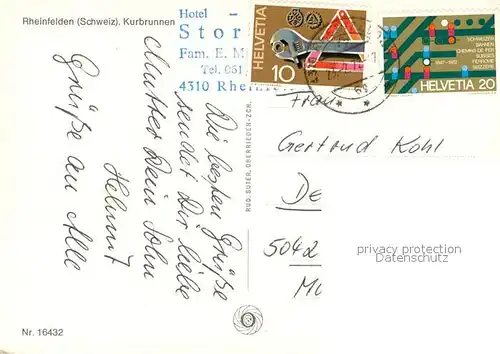 Rheinfelden (Schweiz). Kurbrunnen
Hotel -
Stor
Fam. E. M
Tel. 061
4310 Rheinf
HELVETIA
10
SCHWEIZER
BAHNEN
CHEMINS DE FER
SUISSES
FERROVIE
SVIZZERE
1847-1972
HELVETIA 20
Die besten Grüße
sendet Dir liebe
Mutter Dein Sohn
Helmut
Grüße an Alle
RUD. SUTER, OBERRIEDEN-ZCH.
Frau
Gertrud Kohl
De
5042
Mü
privacy protection
Datenschutz
Nr. 16432